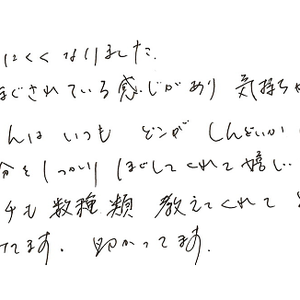 にくくなりました。
ほぐされている感じがあり 気持ちが
んは いつも どこが しんどいか
分をしっかり ほぐしてくれて嬉しい
チも 数種類 教えてくれて
けてます。助かってます。